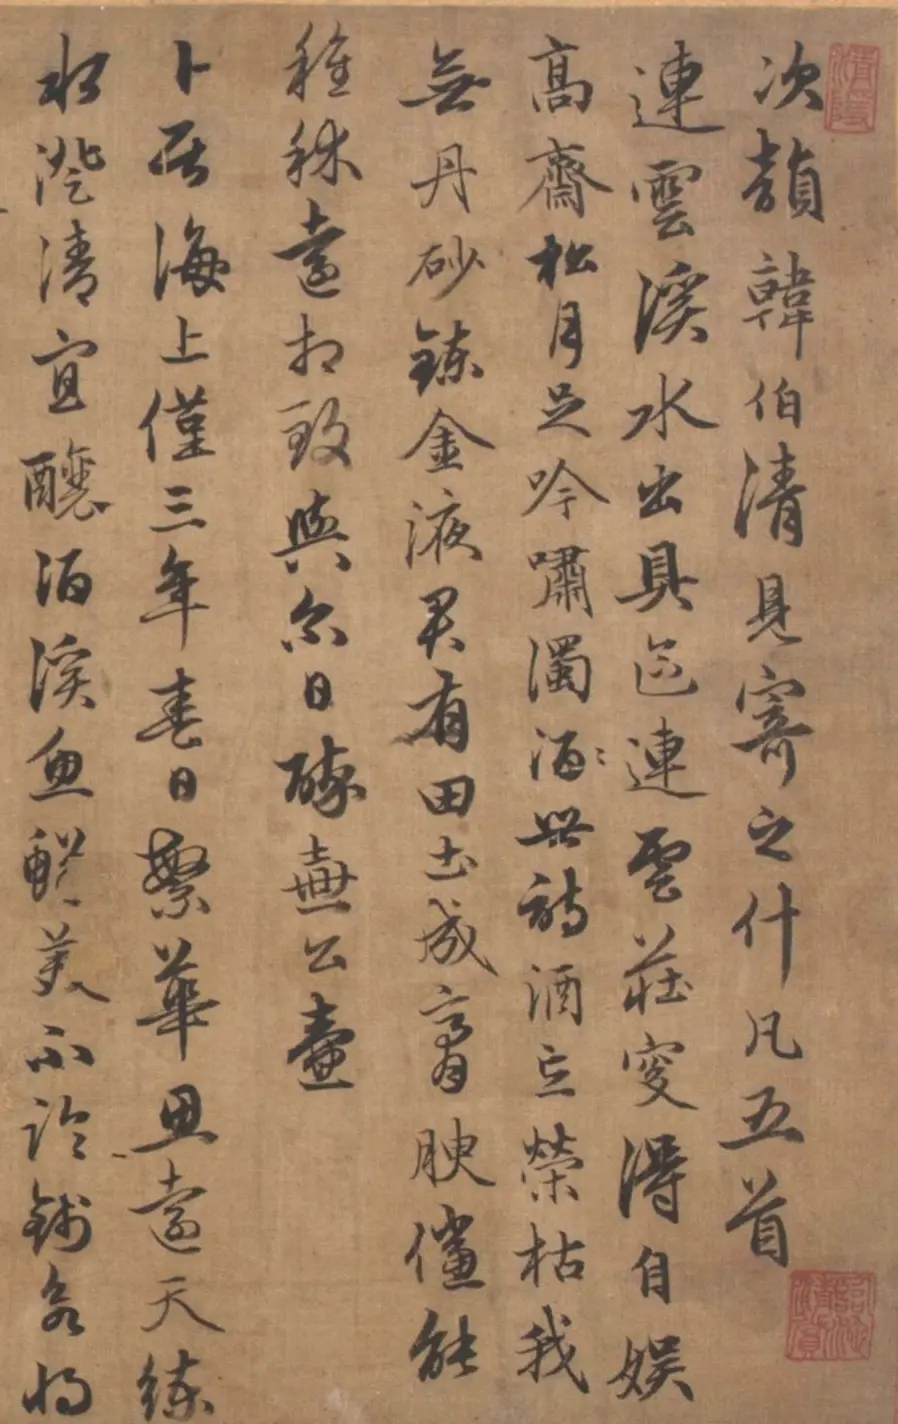 次韻韓伯清見寄之什凡五首
連雲溪水出具區連雲莊叟得自娛
高齋松月足吟嘯濁酒世詩酒忘榮枯我
無丹砂鍊金液君有田土成膏腴儻能
種秫遠相致與爾日醉壺公壺
卜居海上僅三年春日繁華思遠天練
水澄清宜釀酒溪魚鮮美不論錢客將